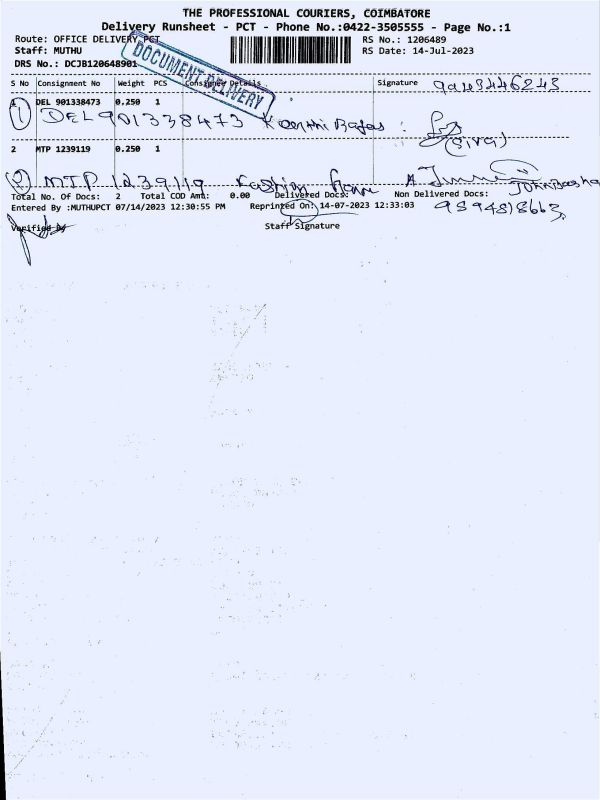 THE PROFESSIONAL COURIERS, COIMBATORE
Delivery Runsheet - PCT - Phone No.:0422-3505555 - Page No.:1
Route: OFFICE DELIVERY,PCT
RS No.: 1206489
Staff: MUTHU
RS Date: 14-Jul-2023
DRS No.: DCJB120648901
DOCUMENT DELIVERY
S No Consignment No Weight PCS Consignee Details Signature 9443446243
1 DEL 901338473 0.250 1
1 DEL 901338473
(Siva)
2 MTP 1239119 0.250 1
2 MTP 1239119 Fashion
Total No. Of Docs: 2 Total COD Amt: 0.00 Delivered Docs: Non Delivered Docs:
Entered By :MUTHUPCT 07/14/2023 12:30:55 PM Reprinted On: 14-07-2023 12:33:03 9894818663
Verified By Staff Signature